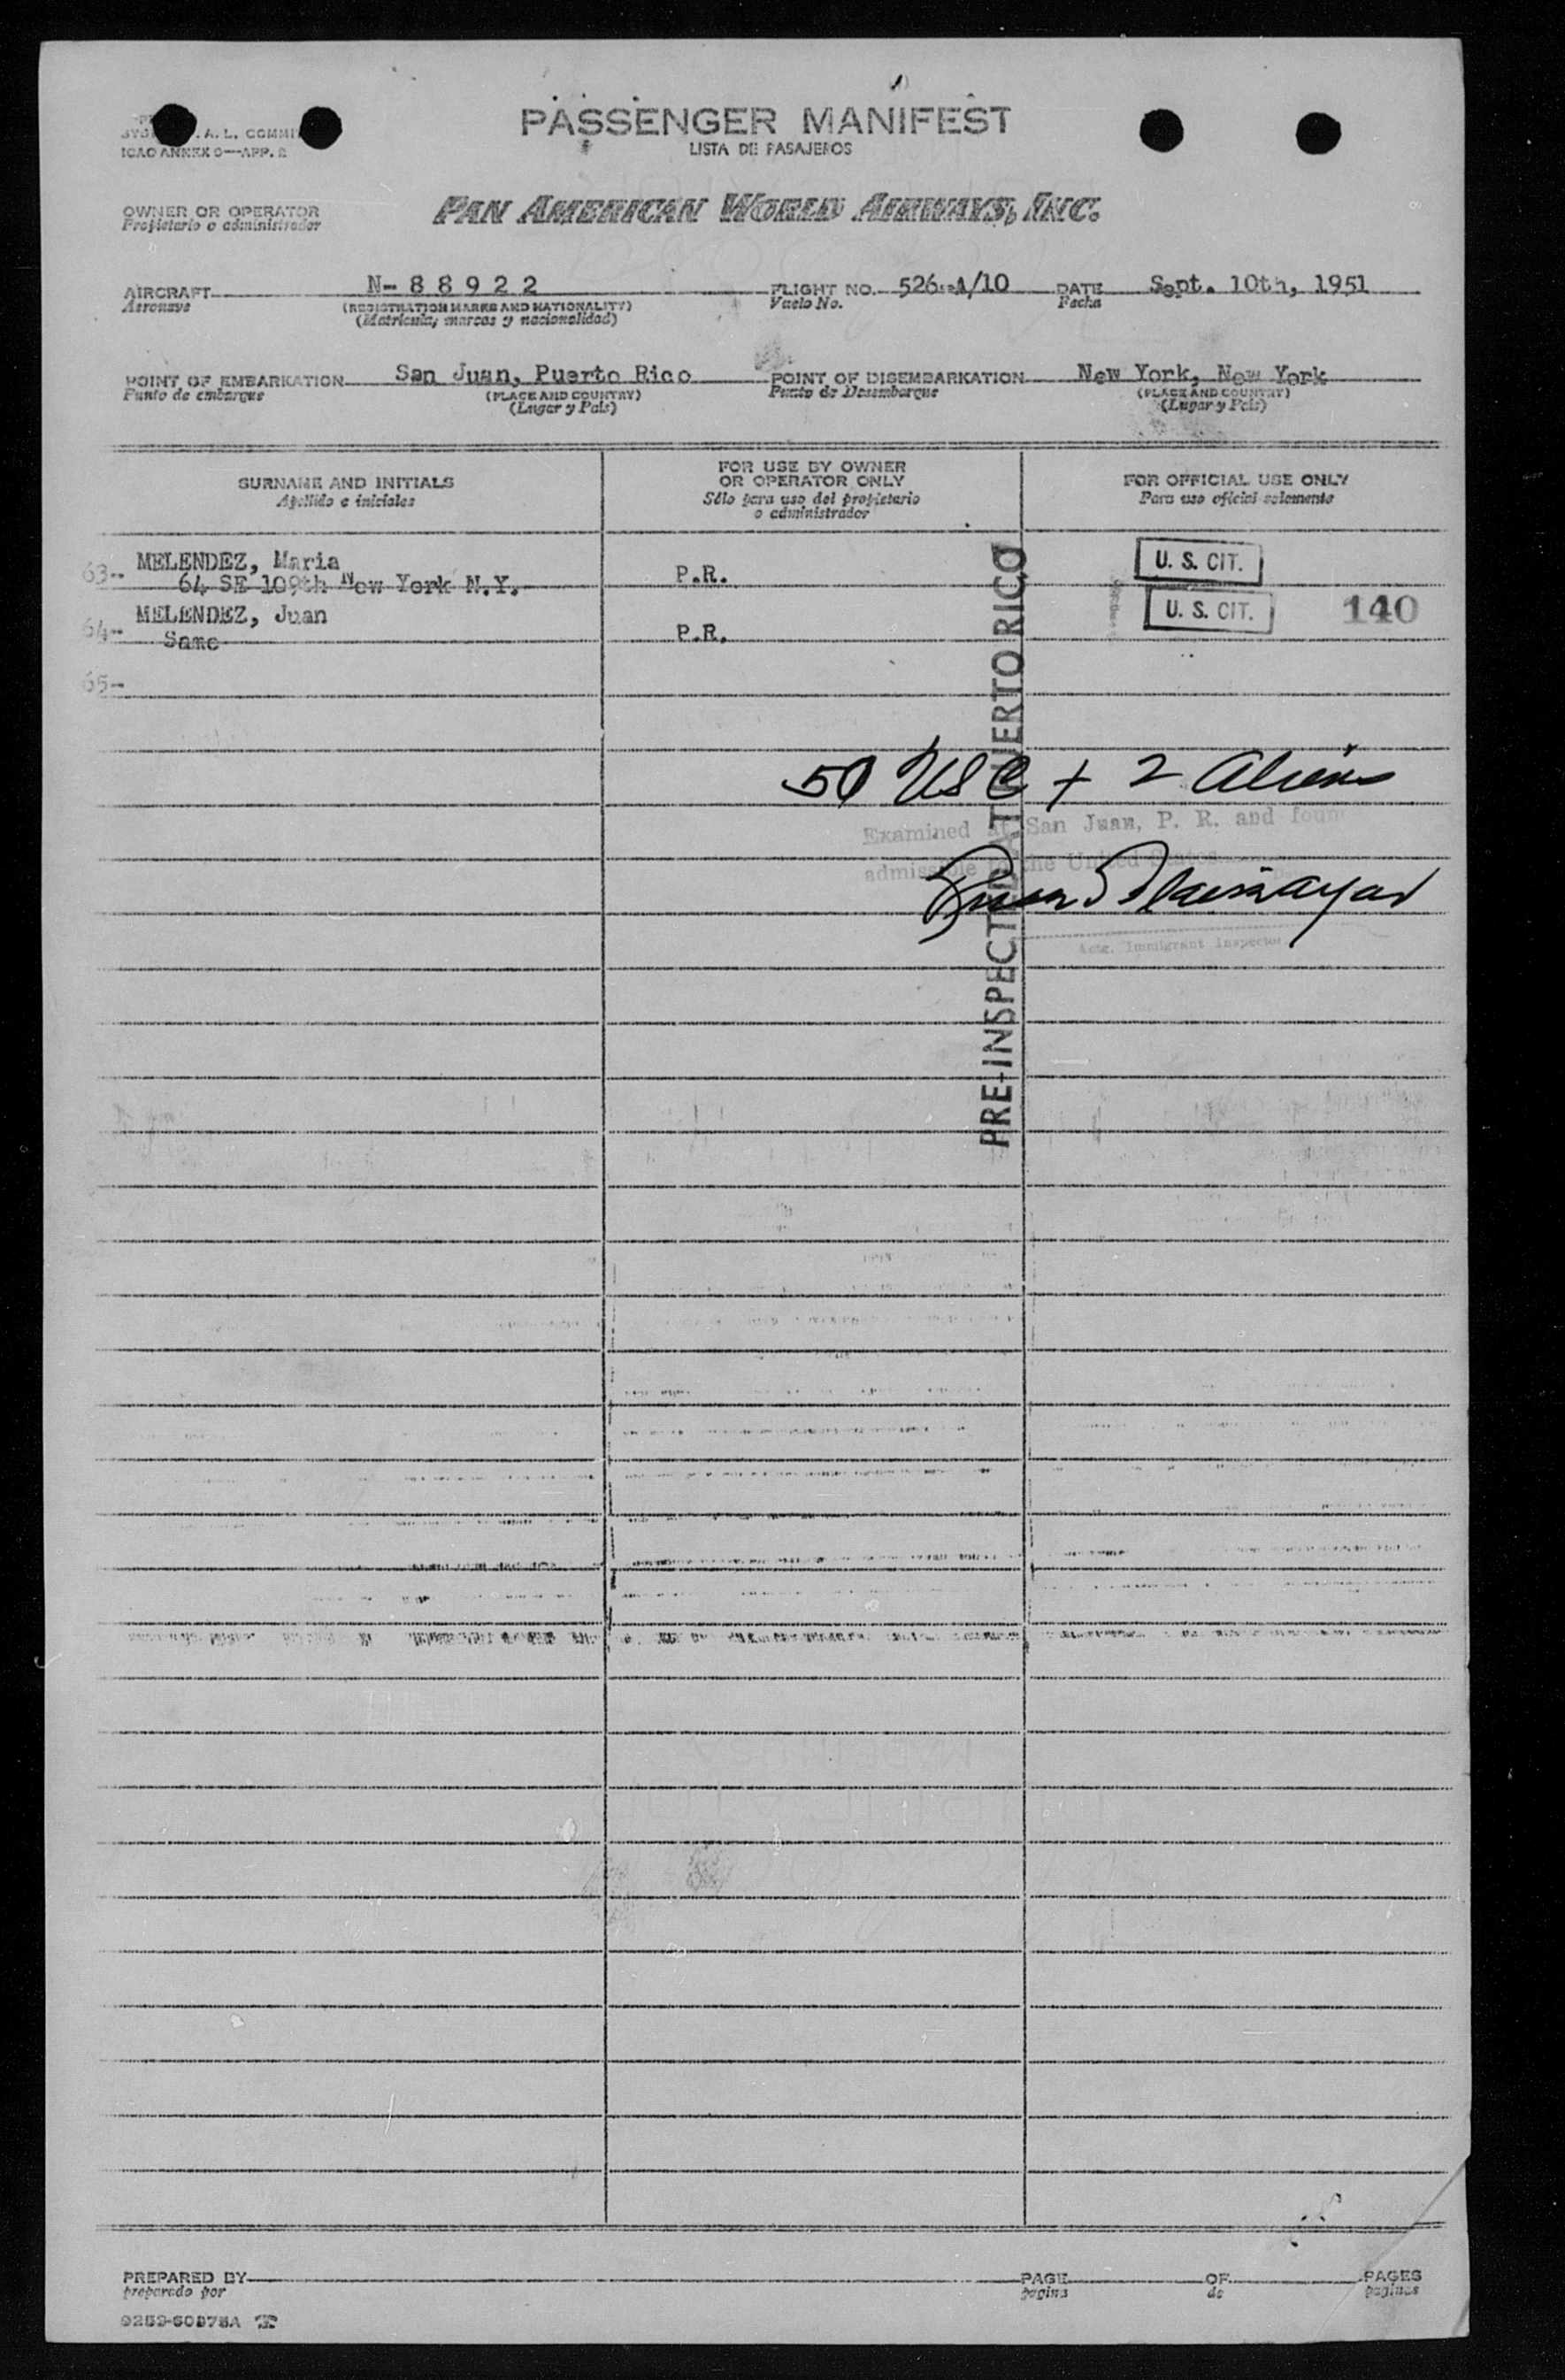 A. L. COMMI
ICAO ANNEX 9—APP. 2
PASSENGER MANIFEST
LISTA DE PASAJEROS
OWNER OR OPERATOR
Propietario o administrador
PAN AMERICAN WORLD AIRWAYS, INC.
AIRCRAFT N- 8 8 9 2 2 FLIGHT NO. 526-A/10 DATE Sept. 10th, 1951
Aeronave (REGISTRATION MARKS AND NATIONALITY) Vuelo No. Fecha
(Matricula, marcas y nacionalidad)
POINT OF EMBARKATION San Juan, Puerto Rico POINT OF DISEMBARKATION New York, New York
Punto de embarque (PLACE AND COUNTRY) Punto de Desembarque (PLACE AND COUNTRY)
(Lugar y Pais) (Lugar y Pais)
SURNAME AND INITIALS
Apellido e iniciales
FOR USE BY OWNER
OR OPERATOR ONLY
Sólo para uso del propietario
o administrador
FOR OFFICIAL USE ONLY
Para uso oficial solamente
63-- MELENDEZ, Maria P.R. U. S. CIT.
64 SE 109th New York N.Y.
64-- MELENDEZ, Juan P.R. U. S. CIT. 140
Same
65--
PRE-INSPECTED AT PUERTO RICO
50 USC + 2 Aliens
Examined at San Juan, P. R. and foun
admissible to the United States
Actg. Immigrant Inspector
PREPARED BY PAGE OF PAGES
preparado por pagina de paginas